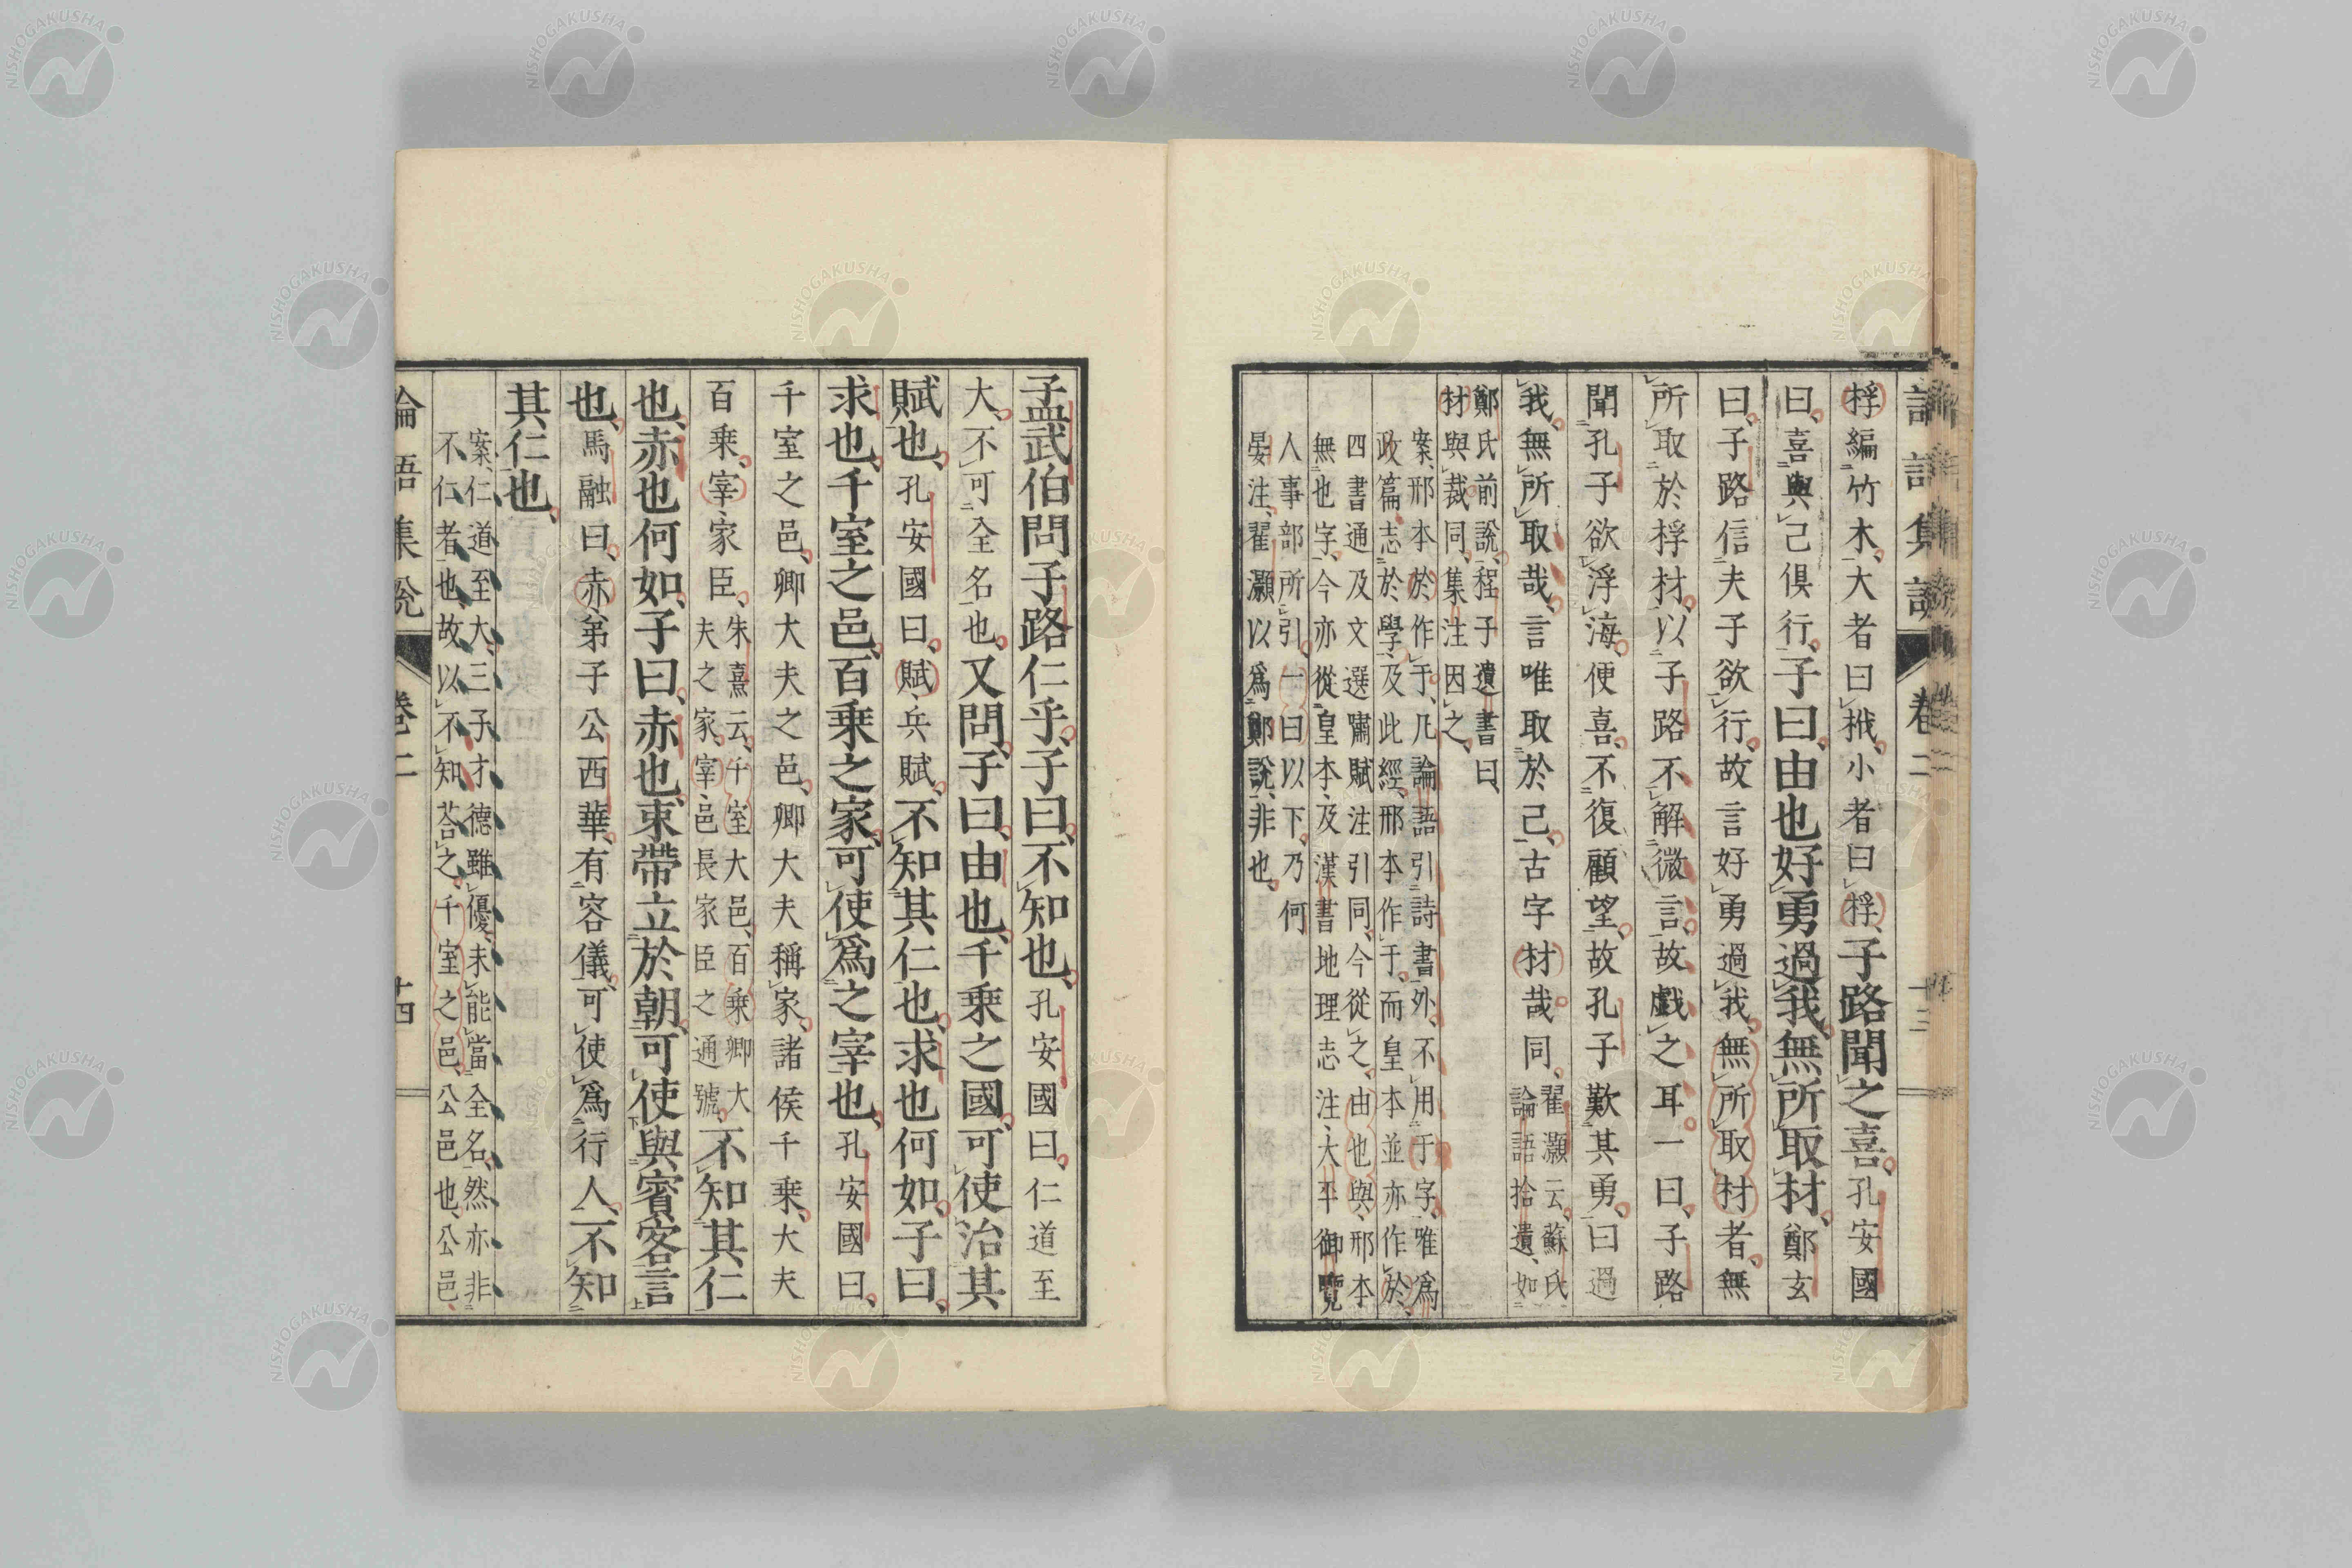 桴編竹木、大者曰栰、小者曰桴、子路聞之喜。孔安國
曰、喜與己俱行、子曰、由也好勇過我、無所取材、鄭玄
曰、子路信夫子欲行、故言好勇過我、無所取材者、無
所取於桴材、以子路不解微言、故戲之耳。一曰、子路
聞孔子欲浮海、便喜、不復顧望、故孔子歎其勇、曰過
我、無所取哉、言唯取於己、古字材哉同、翟灝云、蘇氏
論語拾遺、如
鄭氏前說、程子遺書曰、
材與裁同、集注因之、
案、邢本於作于、凡論語引詩書外、不用于字、唯爲
政篇、志於學、及此經、邢本作于、而皇本並亦作於、
四書通及文選嘯賦注引同、今從之、由也與、邢本
無也字、今亦從皇本、及漢書地理志注、大平御覽
人事部所引、一曰以下、乃何
晏注、翟灝以爲鄭說、非也、
卷二
孟武伯問子路仁乎、子曰、不知也、孔安國曰、仁道至
大、不可全名也、又問、子曰、由也、千乘之國、可使治其
賦也、孔安國曰、賦、兵賦、不知其仁也、求也何如、子曰、
求也、千室之邑、百乘之家、可使爲之宰也、孔安國曰、
千室之邑、卿大夫之邑、卿大夫稱家、諸侯千乘、大夫
百乘、宰、家臣、朱熹云、千室大邑、百乘卿大
夫之家、宰、邑長家臣之通號、不知其仁
也、赤也何如、子曰、赤也、束帶立於朝、可使與賓客言
也、馬融曰、赤、弟子公西華、有容儀、可使爲行人、不知
其仁也、
案、仁道至大、三子才德雖優、未能當全名、然亦非
不仁者也、故以不知荅之、千室之邑、公邑也、公邑、
論語集說 卷二 十四